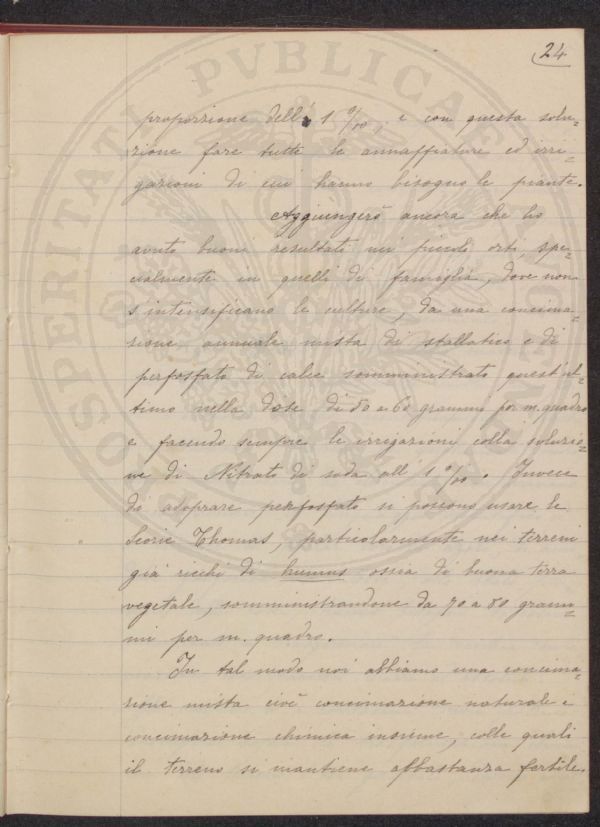 24
proporzione dell'1 %00, e con questa solu=
zione fare tutte le annaffiature ed irri=
gazioni di cui hanno bisogno le piante.
Aggiungerò ancora che ho
avuto buoni resultati nei piccoli orti, spe=
cialmente in quelli di famiglia, dove non
s'intensificano le culture, da una concima=
zione annuale mista di stallatico e di
perfosfato di calce somministrato quest'ul=
timo nella dose di 50 a 60 grammi per m. quadro
e facendo sempre le irrigazioni colla soluzio=
ne di Nitrato di soda all'1 %00. Invece
di adoprare perfosfato si possono usare le
Scorie Thomas, particolarmente nei terreni
già ricchi di humus ossia di buona terra
vegetale, somministrandone da 70 a 80 gram=
mi per m. quadro.
In tal modo noi abbiamo una concima=
zione mista cioè concimazione naturale e
concimazione chimica insieme, colle quali
il terreno si mantiene abbastanza fertile.
PROSPERITATI PVBLICAE